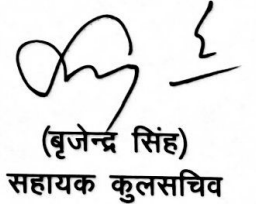 (बृजेन्द्र सिंह)
सहायक कुलसचिव